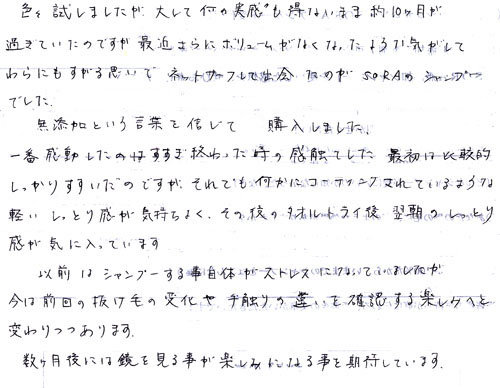 色々試しましたが、大して何の実感も得ないまま約10ヶ月が
過ぎていたのですが最近さらにボリュームがなくなったような気がして
わらにもすがる思いで ネットサーフして出会ったのが SORAのシャンプー
でした。
無添加という言葉を信じて 購入しました。
一番感動したのはすすぎ終わった時の感触でした 最初は比較的
しっかりすすいだのですが、それでも何かにコーティングされているような
軽いしっとり感が気持ちよく、その後のタオルドライ後 翌朝のしっとり
感が気に入っています
以前はシャンプーする事自体がストレスになっていましたが
今は前回の抜け毛の変化や手触りの違いを確認する楽しみへと
変わりつつあります。
数ヶ月後には鏡を見る事が楽しみになる事を期待しています。